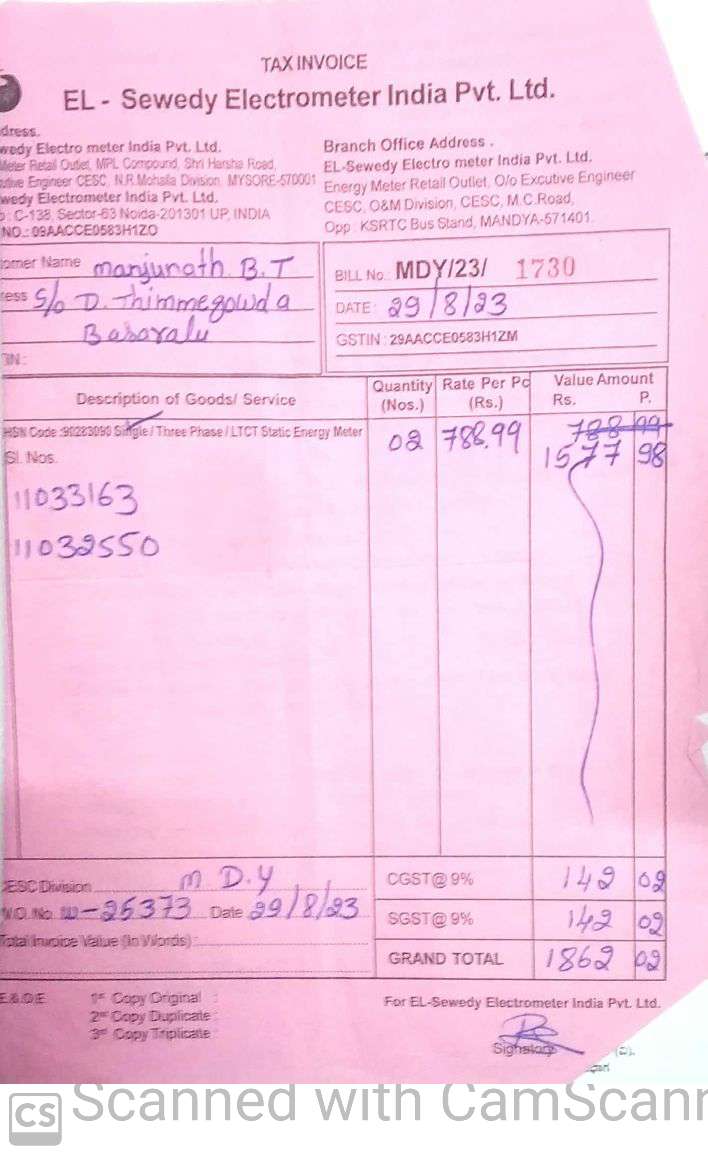 TAX INVOICE
EL - Sewedy Electrometer India Pvt. Ltd.
dress.
wedy Electro meter India Pvt. Ltd.
Meter Retail Outlet, MPL Compound, Shri Harsha Road,
utive Engineer CESC, N.R.Mohalla Division, MYSORE-570001
wedy Electrometer India Pvt. Ltd.
: C-138, Sector-63 Noida-201301 UP, INDIA
NO.: 09AACCE0583H1ZO
Branch Office Address .
EL-Sewedy Electro meter India Pvt. Ltd.
Energy Meter Retail Outlet, O/o Excutive Engineer
CESC, O&M Division, CESC, M.C.Road,
Opp : KSRTC Bus Stand, MANDYA-571401.
omer Name manjunath. B.T
ress S/o D. Thimmegowda
Basaralu
IN :
BILL No.: MDY/23/ 1730
DATE : 29/8/23
GSTIN : 29AACCE0583H1ZM
Description of Goods/ Service
Quantity (Nos.)
Rate Per Pc (Rs.)
Value Amount
Rs. P.
HSN Code :90283090 Single / Three Phase / LTCT Static Energy Meter
02 788.99 788 99
1577 98
Sl. Nos.
11033163
11032550
CESC Division M D.Y
W.O. No. 25373 Date 29/8/23
Total Invoice Value (In Words) :
CGST@ 9% 142 02
SGST@ 9% 142 02
GRAND TOTAL 1862 02
E.&.O.E
1st Copy Original :
2nd Copy Duplicate :
3rd Copy Triplicate :
For EL-Sewedy Electrometer India Pvt. Ltd.
Signatory
CS Scanned with CamScann